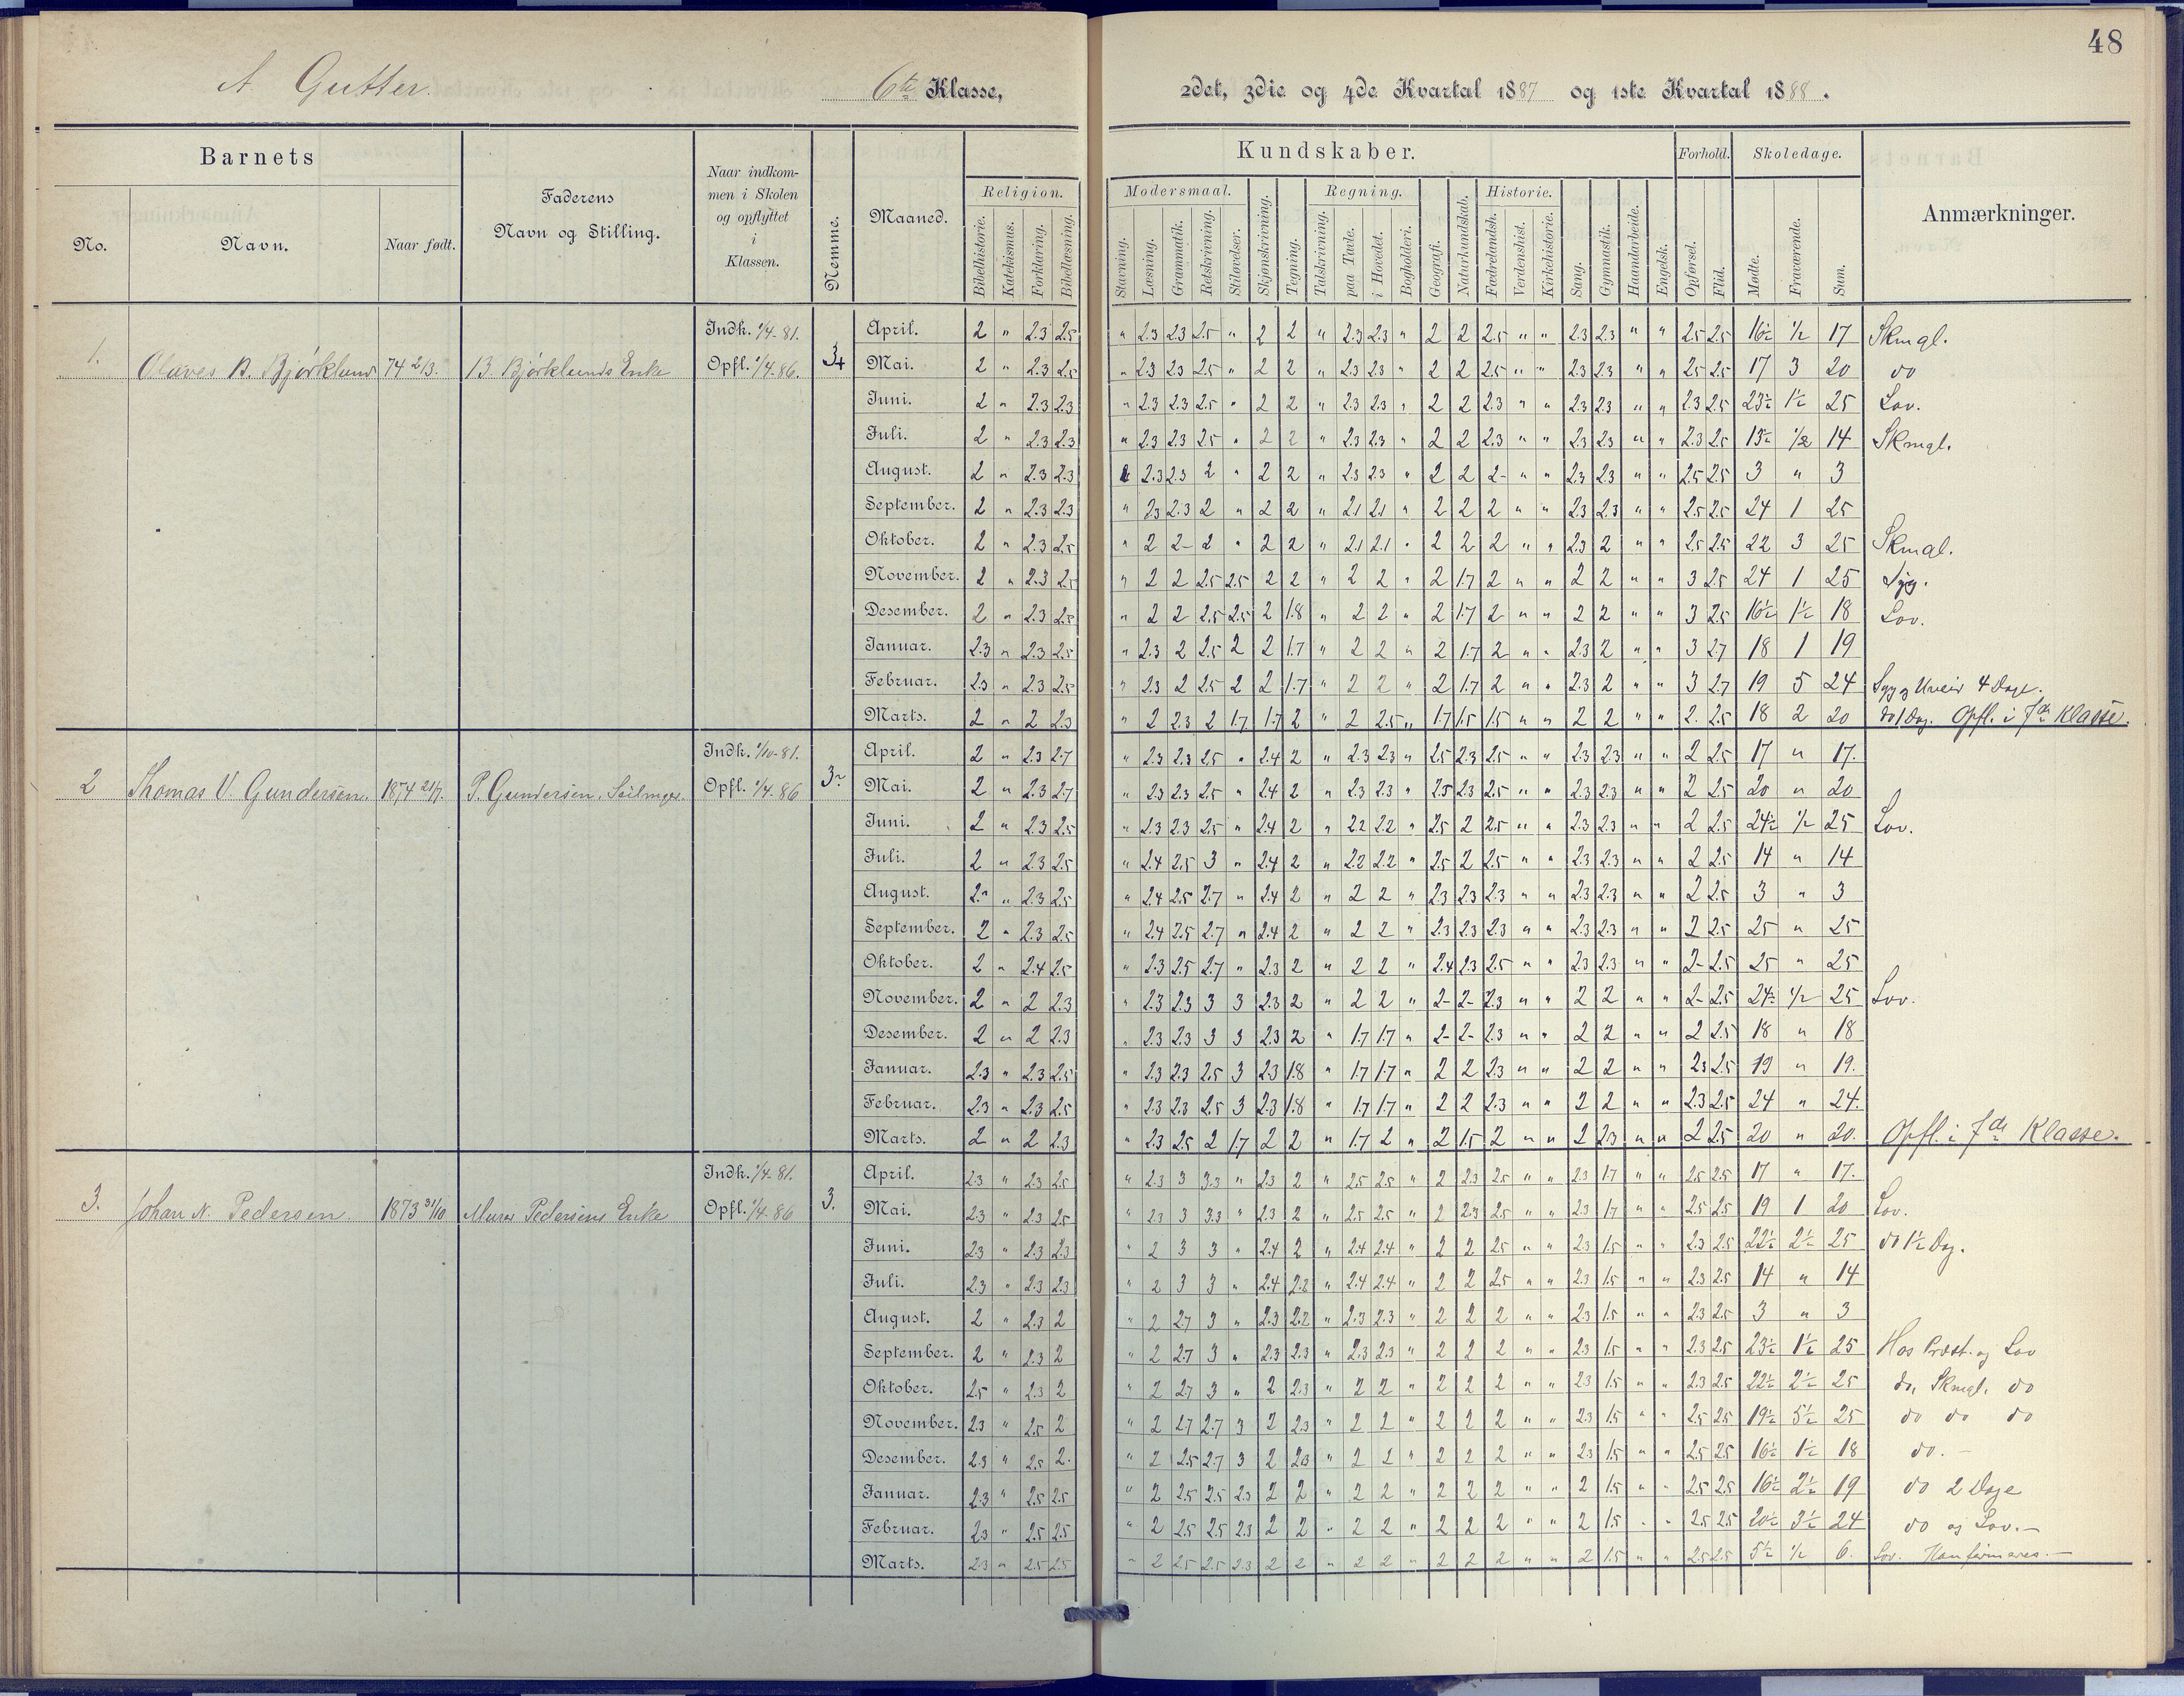 48
A. Gutter. 6te Klasse, 2det, 3die og 4de Kvartal 1887 og 1ste Kvartal 1888.
Barnets
No. Navn. Naar født.
Faderens Navn og Stilling.
Naar indkommen i Skolen og opflyttet i Klassen.
Nemme.
Maaned.
Kundskaber.
Religion. Bibelhistorie. Katekismus. Forklaring. Bibellæsning.
Modersmaal. Stavning. Læsning. Grammatik. Retskrivning. Stiløvelser.
Skjønskrivning. Tegning.
Regning. Talskrivning. paa Tavle. i Hovedet. Bogholderi.
Geografi. Naturkundskab.
Historie. Fædrelandsh. Verdenshist. Kirkehistorie.
Sang. Gymnastik. Haandarbeide. Engelsk.
Forhold. Opførsel. Flid.
Skoledage. Mødte. Fraværende. Sum.
Anmærkninger.
1. Olaves B. Bjørklund 74 2/3. B. Bjørklunds Enke Indk. 1/4-81. Opfl. 1/4.86.
April. 2 " 2.3 2.5 " 2.3 2.3 2.5 " 2 2 " 2.3 2.3 " 2 2 2.5 " " 2.3 2.3 " " 2.5 2.5 16½ ½ 17 Skmgl.
Mai. 2 " 2.3 2.5 " 2.3 2.3 2.5 " 2 2 " 2.3 2.3 " 2 2 2.5 " " 2.3 2.3 " " 2.5 2.5 17 3 20 do
Juni. 2 " 2.3 2.3 " 2.3 2.3 2.5 " 2 2 " 2.3 2.3 " 2 2 2.3 " " 2.3 2.3 " " 2.3 2.5 23½ 1½ 25 Lov.
Juli. 2 " 2.3 2.3 " 2.3 2.3 2.5 " 2 2 " 2.3 2.3 " 2 2 2.3 " " 2.3 2.3 " " 2.3 2.5 13½ 1/2 14 Skmgl.
August. 2 " 2.3 2.3 2.3 2.3 2 " 2 2 " 2.3 2.3 " 2 2 2- " " 2.3 2.3 " " 2.5 2.5 3 " 3
September. 2 " 2.3 2.3 " 2.3 2.3 2 " 2 2 " 2.1 2.1 " 2 2 2 " " 2.3 2.3 " " 2.5 2.5 24 1 25
Oktober. 2 " 2.3 2.5 " 2 2- 2 " 2 2 " 2.1 2.1 " 2 2 2 " " 2.3 2 " " 2.5 2.5 22 3 25 Skmgl.
November. 2 " 2.3 2.5 " 2 2 2.5 2.5 2 2 " 2 2 " 2 1.7 2 " " 2 2 " " 3 2.5 24 1 25 Syg.
Desember. 2 " 2.3 2.5 " 2 2 2.5 2.5 2 1.8 " 2 2 " 2 1.7 2 " " 2 2 " " 3 2.5 16½ 1½ 18 Lov.
Januar. 2.3 " 2.3 2.5 " 2.3 2 2.5 2 2 1.7 " 2 2 " 2 1.7 2 " " 2.3 2 " " 3 2.7 18 1 19
Februar. 2.3 " 2.3 2.5 " 2.3 2 2.5 2 2 1.7 " 2 2 " 2 1.7 2 " " 2.3 2 " " 3 2.7 19 5 24 Syg og Uveir 4 Dage.
Marts. 2 " 2 2.3 " 2 2.3 2 1.7 1.7 2 " 2 2.5 " 1.7 1.5 1.5 " " 2 2 " " 2. 2.5 18 2 20 do 1 Dag. Opfl. i 7de Klasse.
2 Thomas V. Gundersen. 1874 21/7. P. Gundersen, Seilmager. Indk. 1/10-81. Opfl. 1/4.86
April. 2 " 2.3 2.7 " 2.3 2.3 2.5 " 2.4 2 " 2.3 2.3 " 2.5 2.3 2.5 " " 2.3 2.3 " " 2 2.5 17 " 17.
Mai. 2 " 2.3 2.7 " 2.3 2.3 2.5 " 2.4 2 " 2.3 2.3 " 2.5 2.3 2.5 " " 2.3 2.3 " " 2 2.5 20 " 20
Juni. 2 " 2.3 2.5 " 2.3 2.3 2.5 " 2.4 2 " 2.2 2.2 " 2.5 2 2.5 " " 2.3 2.3 " " 2 2.5 24½ ½ 25 Lov.
Juli. 2 " 2.3 2.5 " 2.4 2.5 3 " 2.4 2 " 2.2 2.2 " 2.5 2 2.5 " " 2.3 2.3 " " 2 2.5 14 " 14
August. 2 " 2.3 2.5 " 2.4 2.5 2.7 " 2.4 2 " 2 2 " 2.3 2.3 2.3 " " 2.3 2.3 " " 2 2.5 3 " 3
September. 2 " 2.3 2.5 " 2.4 2.5 2.7 " 2.4 2 " 2 2 " 2.3 2.3 2.3 " " 2.3 2.3 " " 2 2.5 25 " 25
Oktober. 2 " 2.4 2.5 " 2.3 2.5 2.7 " 2.3 2 " 2 2 " 2.4 2.3 2.5 " " 2.3 2.3 " " 2- 2.5 25 " 25
November. 2 " 2 2.3 " 2.3 2.3 3 3 2.3 2 " 2 2 " 2- 2- 2.3 " " 2 2 " " 2- 2.5 24½ ½ 25 Lov.
Desember. 2 " 2 2.3 " 2.3 2.3 3 3 2.3 2 " 1.7 1.7 " 2- 2- 2.3 " " 2 2 " " 2 2.5 18 " 18
Januar. 2.3 " 2.3 2.5 " 2.3 2.3 2.5 3 2.3 1.8 " 1.7 1.7 " 2 2 2.3 " " 2 2 " " 2.3 2.5 19 " 19.
Februar. 2.3 " 2.3 2.5 " 2.3 2.3 2.5 3 2.3 1.8 " 1.7 1.7 " 2 2 2.3 " " 2 2 " " 2.3 2.5 24 " 24.
Marts. 2 " 2 2.3 " 2.3 2.5 2 1.7 2 2 " 1.7 2 " 2 1.5 2 " " 2 2.3 " " 2 2.5 20 " 20. Opfl. i 7de Klasse.
3. Johan N. Pedersen. 1873 31/10 Murer Pedersens Enke Indk. 1/4-81. Opfl. 1/4.86 3.
April. 2.3 " 2.3 2.5 " 2.3 3 3.3 " 2.3 2 " 2.5 2.5 " 2 2.3 2.5 " " 2.3 1.7 " " 2.5 2.5 17 " 17.
Mai. 2.3 " 2.3 2.5 " 2.3 3 3.3 " 2.3 2 " 2.5 2.5 " 2 2.3 2.5 " " 2.3 1.7 " " 2.5 2.5 19 1 20 Lov.
Juni. 2.3 " 2.3 2.3 " 2 3 3 " 2.4 2 " 2.4 2.4 " 2 2 2.5 " " 2.3 1.5 " " 2.3 2.5 22½ 2½ 25 do 1½ Dag.
Juli. 2.3 " 2.3 2.3 " 2 3 3 " 2.4 2.2 " 2.4 2.4 " 2 2 2.5 " " 2.3 1.5 " " 2.3 2.5 14 " 14
August. 2 " 2.3 2 " 2 2.7 3 " 2.3 2.2 " 2.3 2.3 " 2 2 2 " " 2.3 1.5 " " 2.3 2.5 3 " 3
September. 2 " 2.3 2 " 2 2.7 3 " 2.3 2.3 " 2.3 2.3 " 2 2 2 " " 2.3 1.5 " " 2.3 2.5 23½ 1½ 25 Hos Præst. og Lov
Oktober. 2.5 " 2.3 2 " 2 2.7 3 " 2 2.3 " 2 2 " 2 2 2 " " 2.3 1.5 " " 2.3 2.5 22½ 2½ 25 do, Skmgl. do
November. 2.3 " 2.5 2 " 2 2.7 2.7 3 2 2.3 " 2 2 " 2 2 2 " " 2.3 1.5 " " 2.5 2.5 19½ 5½ 25 do do do
Desember. 2.3 " 2.5 2. " 2 2.5 2.7 3 2 2.3 " 2 2 " 2 2 2 " " 2.3 1.5 " " 2.5 2.5 16½ 1½ 18 do. -
Januar. 2.3 " 2.5 2.5 " 2 2.5 2.5 2.3 2 2 " 2 2 " 2 2 2 " " 2 1.5 " " 2.5 2.5 16½ 2½ 19 do 2 Dage
Februar. 2.3 " 2.5 2.5 " 2 2.5 2.5 2.3 2 2 " 2 2 " 2 2 2 " " 2 1.5 " " 2.5 2.5 20½ 3½ 24 do og Lov. -
Marts. 2.3 " 2.5 2.5 " 2 2.5 2.5 2.3 2 2 " 2 2 " 2 2 2 " " 2 1.5 " " 2.5 2.5 5½ ½ 6. Lov. Konfirmeres. -